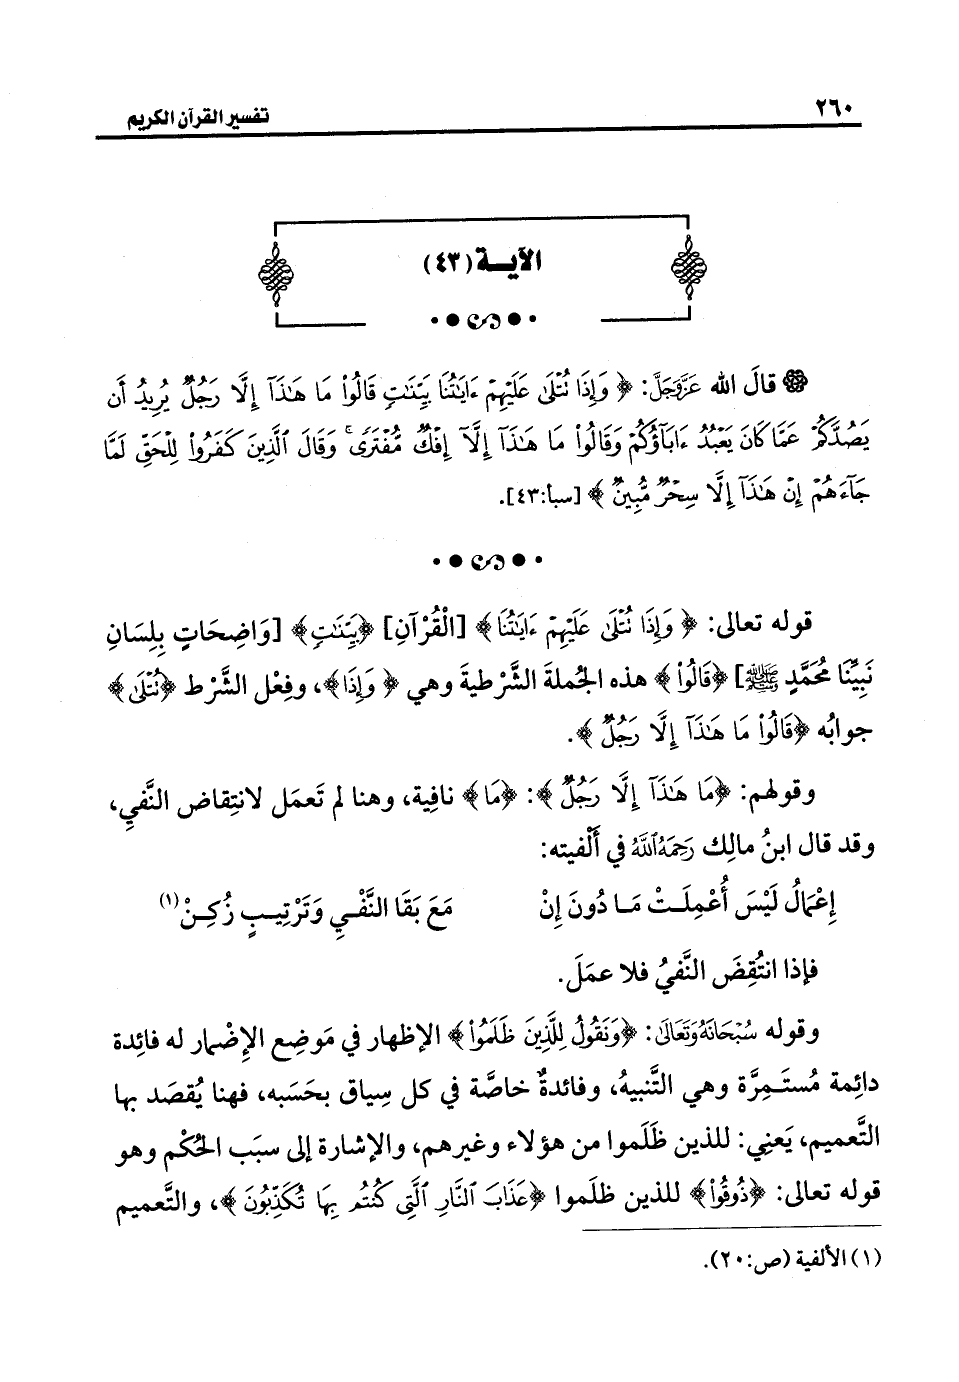 ٢٦٠
تفسير القرآن الكريم
الآيـــة (٤٣)
قالَ الله عَزَّوَجَلَّ: ﴿ وَإِذَا تُتْلَىٰ عَلَيْهِمْ ءَايَٰتُنَا بَيِّنَٰتٍ قَالُوا۟ مَا هَٰذَآ إِلَّا رَجُلٌ يُرِيدُ أَن
يَصُدَّكُمْ عَمَّا كَانَ يَعْبُدُ ءَابَآؤُكُمْ وَقَالُوا۟ مَا هَٰذَآ إِلَّآ إِفْكٌ مُّفْتَرًى ۚ وَقَالَ ٱلَّذِينَ كَفَرُوا۟ لِلْحَقِّ لَمَّا
جَآءَهُمْ إِنْ هَٰذَآ إِلَّا سِحْرٌ مُّبِينٌ ﴾ [سبأ:٤٣].
قوله تعالى: ﴿ وَإِذَا تُتْلَىٰ عَلَيْهِمْ ءَايَٰتُنَا ﴾ [الْقُرْآنِ] ﴿بَيِّنَٰتٍ﴾ [وَاضِحَاتٍ بِلِسَانِ
نَبِيِّنَا مُحَمَّدٍ ﷺ] ﴿قَالُوا۟ ﴾ هذه الجُملةَ الشَّرْطيةَ وهي ﴿ وَإِذَا﴾، وفِعْل الشَّرْط ﴿تُتْلَىٰ﴾
جوابُه ﴿قَالُوا۟ مَا هَٰذَآ إِلَّا رَجُلٌ ﴾.
وقولهم: ﴿مَا هَٰذَآ إِلَّا رَجُلٌ ﴾: ﴿مَا﴾ نافِية، وهنا لم تَعمَل لانتِقاض النَّفيِ،
وقد قال ابنُ مالِك رَحِمَهُ ٱللَّهُ في أَلْفيته:
إِعْمَالُ لَيْسَ أُعْمِلَـتْ مَـا دُونَ إِنْ مَعَ بَقَا النَّفْـيِ وَتَرْتِيـبٍ زُكِـنْ(١)
فإذا انتُقِضَ النَّفيُ فلا عمَلَ.
وقوله سُبْحَانَهُ وَتَعَالَىٰ: ﴿وَنَقُولُ لِلَّذِينَ ظَلَمُوا۟ ﴾ الإظهار في مَوضِع الإِضْمار له فائِدة
دائِمة مُستَمِرَّة وهي التَّنبيهُ، وفائدةٌ خاصَّة في كل سِياق بحَسَبه، فهنا يُقصَد بها
التَّعميم، يَعنِي: للذين ظَلَموا من هؤلاء وغيرهم، والإشارة إلى سبَب الحُكْم وهو
قوله تعالى: ﴿ذُوقُوا۟﴾ للذين ظلَموا ﴿عَذَابَ ٱلنَّارِ ٱلَّتِى كُنتُم بِهَا تُكَذِّبُونَ ﴾، والتَّعميم
(١) الألفية (ص:٢٠).